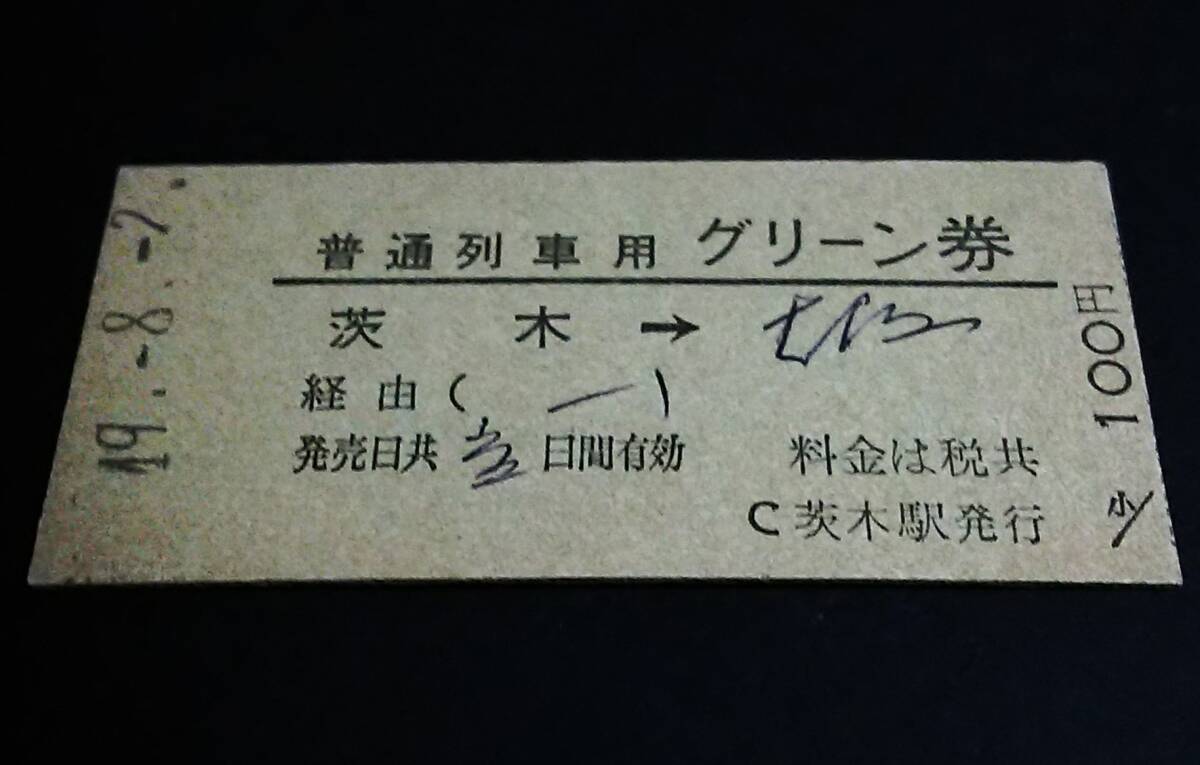 普通列車用 グリーン券
茨木 →
経由 ( 一 )
発売日共 日間有効 料金は税共
C 茨木駅発行
49.-8.-7.
100円
小